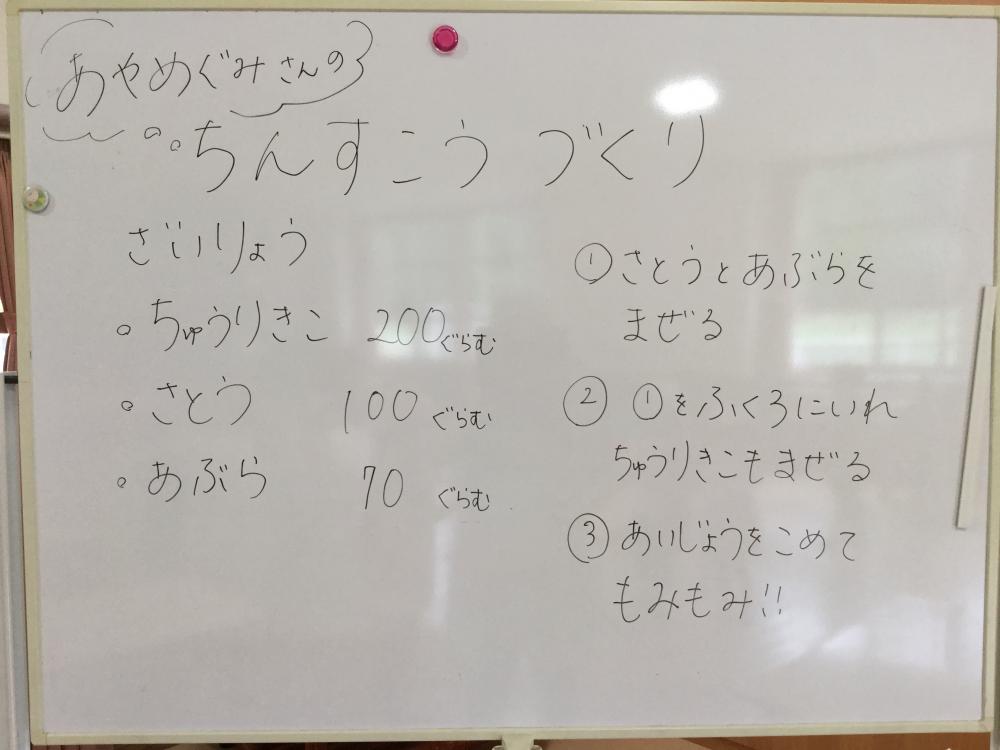 あやめぐみさんの
ちんすこうづくり
ざいりょう
。ちゅうりきこ 200ぐらむ
。さとう 100ぐらむ
。あぶら 70ぐらむ
①さとうとあぶらを
まぜる
②①をふくろにいれ
ちゅうりきこもまぜる
③あいじょうをこめて
もみもみ!!